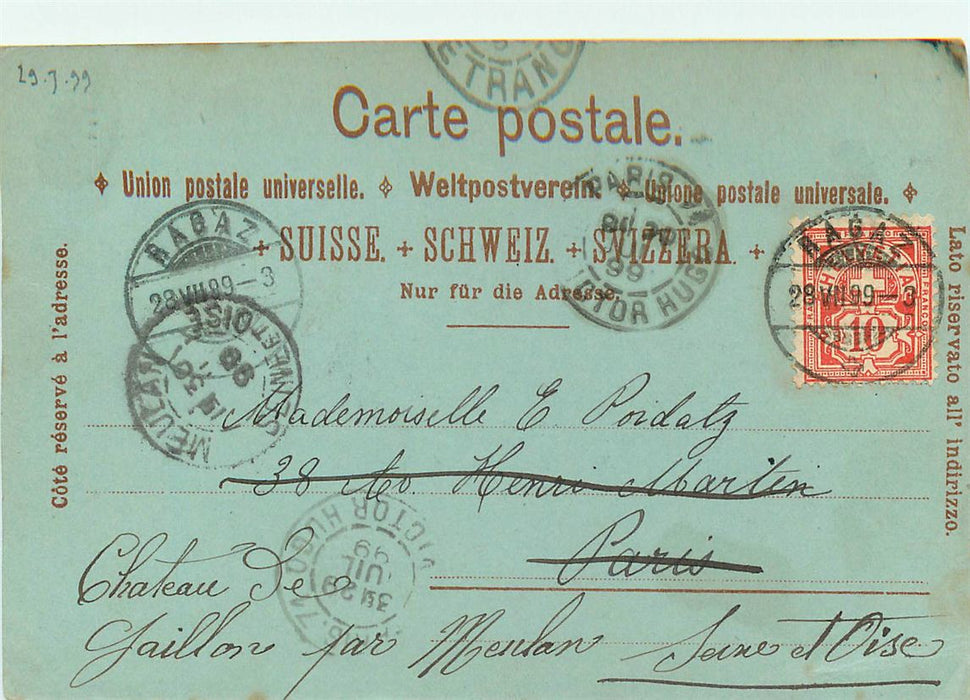 29.7.99
ETRANG
Carte postale.
Union postale universelle. Weltpostverein. Unione postale universale.
SUISSE. + SCHWEIZ. + SVIZZERA.
Nur für die Adresse.
Côté réservé à l'adresse.
Lato riservato all' indirizzo.
RAGAZ
28 VII 99-3
PARIS
99
CTOR HUG
RAGAZ
28 VII 99-3
10
MEULAN
OISE
Mademoiselle E. Poidatz
38 Av. Henri Martin
Paris
VICTOR HUGO
99
Chateau De
Gaillon par Meulan Seine et Oise